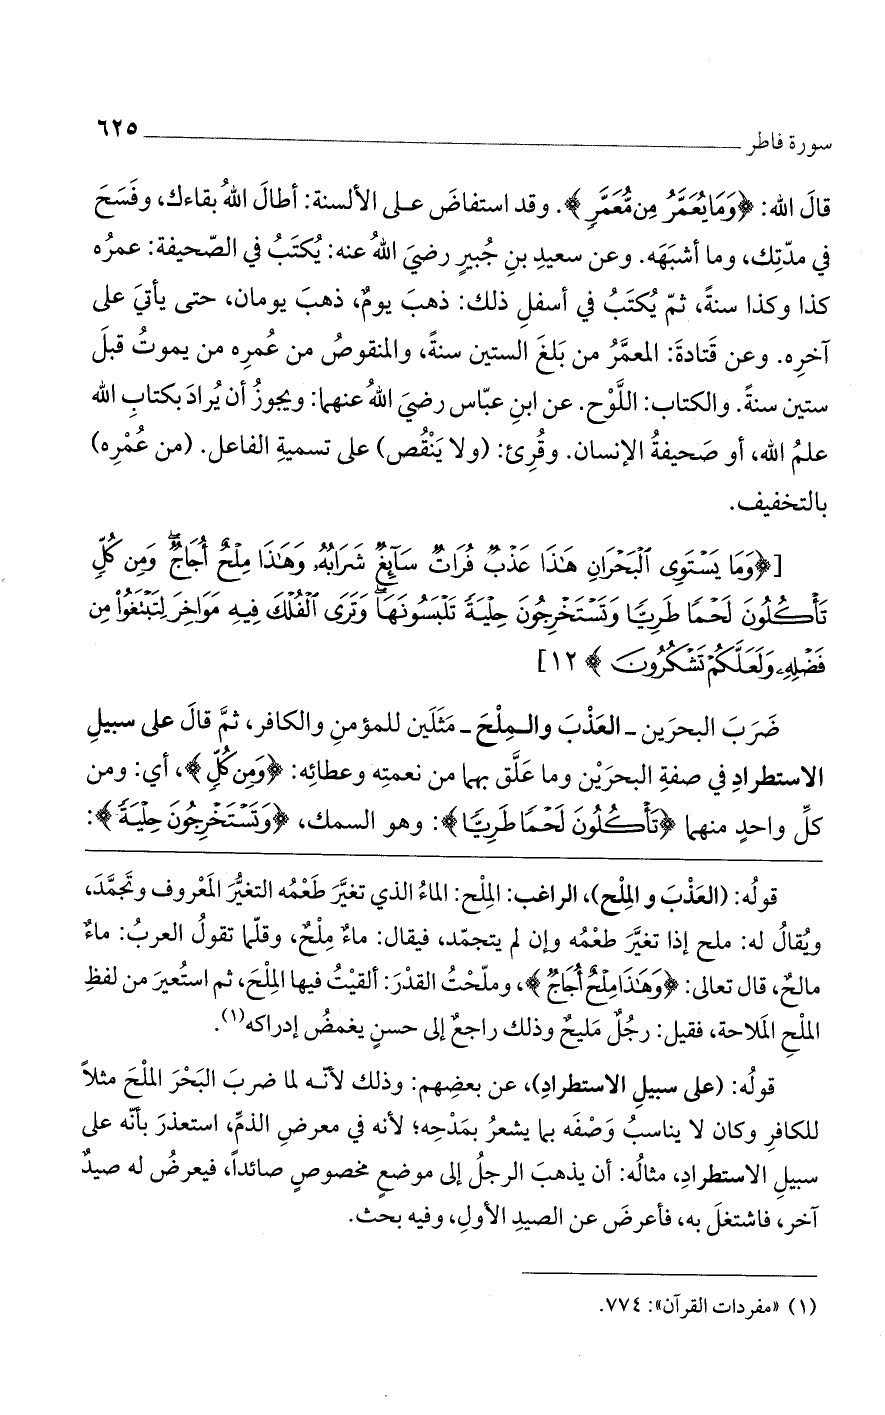 سورة فاطر ــــــــــــــــــــــــــــــ ٦٢٥
قالَ الله: ﴿وَمَا يُعَمَّرُ مِن مُّعَمَّرٍ﴾. وقد استفاضَ على الألسنة: أطالَ اللهُ بقاءك، وفَسَحَ
في مدّتِك، وما أشبَهَه. وعن سعيدِ بنِ جُبيرٍ رضيَ اللهُ عنه: يُكتَبُ في الصّحيفة: عمرُه
كذا وكذا سنةً، ثمّ يُكتَبُ في أسفلِ ذلك: ذهبَ يومٌ، ذهبَ يومان، حتى يأتيَ على
آخرِه. وعن قَتادةَ: المعمَّرُ من بَلغَ الستين سنةً، والمنقوصُ من عُمرِه من يموتُ قبلَ
ستين سنةً. والكتاب: اللَّوْح. عن ابنِ عبّاس رضيَ اللهُ عنهما: ويجوزُ أن يُرادَ بكتابِ الله
علمُ الله، أو صَحيفةُ الإنسان. وقُرِئ: (ولا يَنْقُص) على تسميةِ الفاعل. (من عُمْرِه)
بالتخفيف.
[﴿وَمَا يَسْتَوِى ٱلْبَحْرَانِ هَٰذَا عَذْبٌ فُرَاتٌ سَآئِغٌ شَرَابُهُۥ وَهَٰذَا مِلْحٌ أُجَاجٌ ۖ وَمِن كُلٍّ
تَأْكُلُونَ لَحْمًا طَرِيًّا وَتَسْتَخْرِجُونَ حِلْيَةً تَلْبَسُونَهَا ۖ وَتَرَى ٱلْفُلْكَ فِيهِ مَوَاخِرَ لِتَبْتَغُوا۟ مِن
فَضْلِهِۦ وَلَعَلَّكُمْ تَشْكُرُونَ﴾ ١٢]
ضَرَبَ البحرَين ـ العَذْبَ والمِلْحَ ـ مَثَلَين للمؤمنِ والكافر، ثمَّ قالَ على سبيلِ
الاستطرادِ في صفةِ البحرَيْن وما عَلَّق بهما من نعمتِه وعطائِه: ﴿وَمِن كُلٍّ﴾، أي: ومن
كلِّ واحدٍ منهما ﴿تَأْكُلُونَ لَحْمًا طَرِيًّا﴾: وهو السمك، ﴿وَتَسْتَخْرِجُونَ حِلْيَةً﴾:
قولُه: (العَذْبَ والمِلْح)، الراغب: المِلْح: الماءُ الذي تغيَّرَ طَعْمُه التغيُّرَ المَعْروف وتَجمَّدَ،
ويُقالُ له: ملح إذا تغيَّرَ طعْمُه وإن لم يتجمّد، فيقال: ماءٌ مِلْحٌ، وقلّما تقولُ العربُ: ماءٌ
مالحٌ، قال تعالى: ﴿وَهَٰذَا مِلْحٌ أُجَاجٌ﴾، وملّحْتُ القدْرَ: ألقيْتُ فيها المِلْحَ، ثم استُعيرَ من لفظِ
المْلْحِ المَلاحة، فقيل: رجُلٌ مَليحٌ وذلك راجعٌ إلى حسنٍ يغمضُ إدراكه(١).
قولُه: (على سبيلِ الاستطرادِ)، عن بعضِهم: وذلك لأنّه لما ضربَ البَحْرَ المْلْحَ مثلاً
للكافرِ وكان لا يناسبُ وَصْفَه بما يشعرُ بمَدْحِه؛ لأنه في معرضِ الذمِّ، استعذرَ بأنّه على
سبيلِ الاستطرادِ، مثالُه: أن يذهبَ الرجلُ إلى موضعٍ مخصوصٍ صائداً، فيعرضُ له صيدٌ
آخر، فاشتغلَ به، فأعرضَ عن الصيدِ الأولِ، وفيه بحث.
(١) «مفردات القرآن»: ٧٧٤.